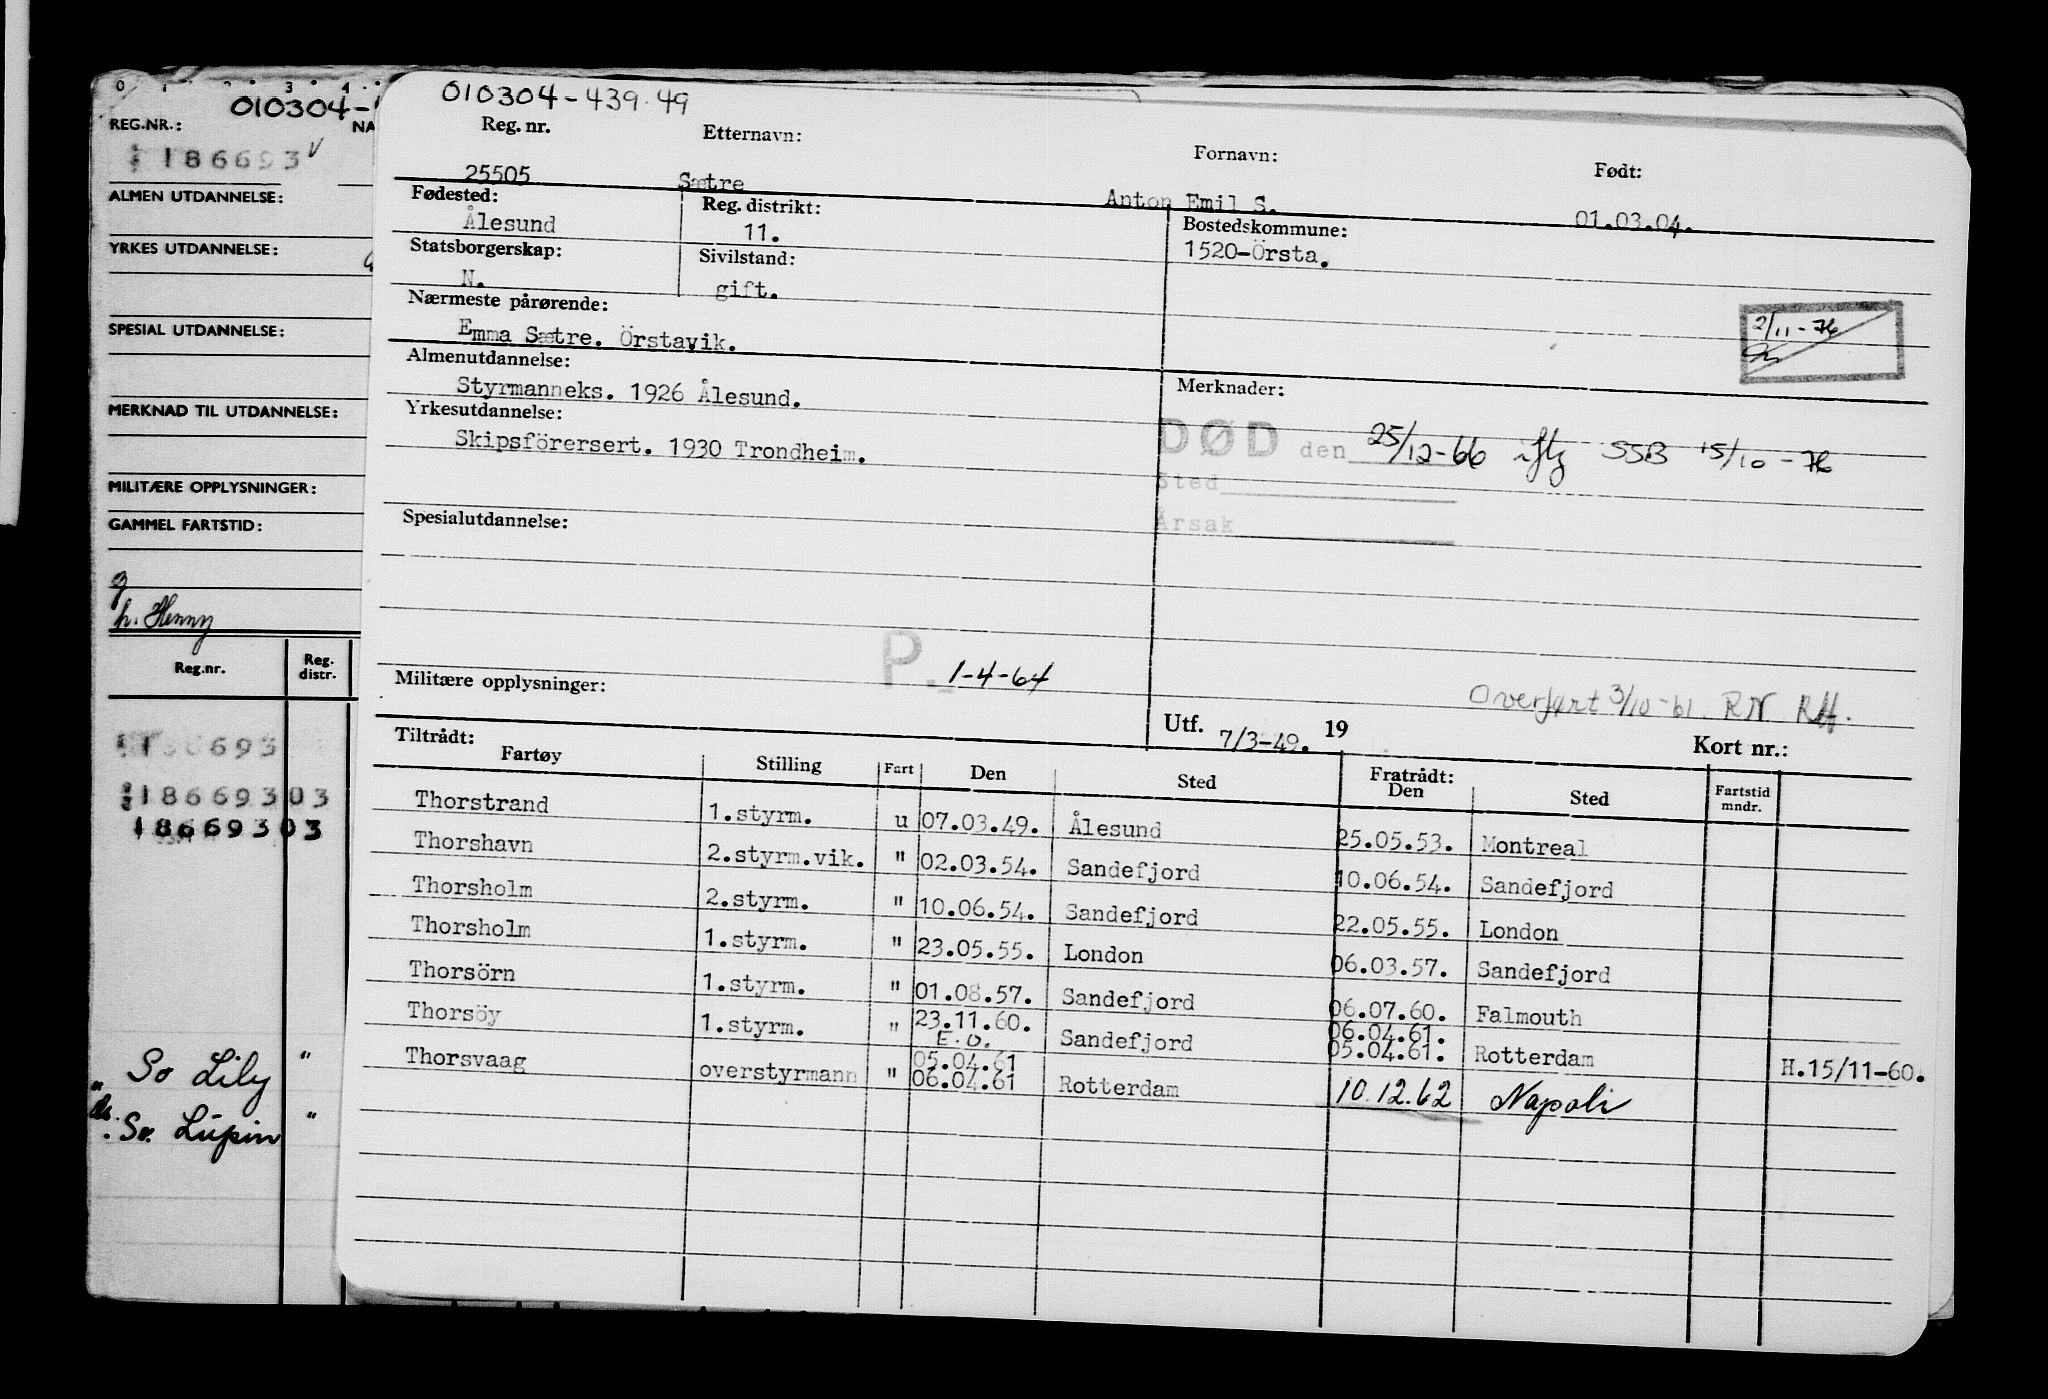 0 1 2 3 4
010304-
REG.NR.: NA
186693 v
ALMEN UTDANNELSE:
YRKES UTDANNELSE:
SPESIAL UTDANNELSE:
MERKNAD TIL UTDANNELSE:
MILITÆRE OPPLYSNINGER:
GAMMEL FARTSTID:
h. Henny
Reg.nr. Reg. distr.
693
18669303
18669303
So Lily "
So. Lupin "
010304-439.49
Reg. nr. Etternavn: Fornavn: Født:
25505 Sætre Anton Emil S. 01.03.04.
Fødested: Reg. distrikt: Bostedskommune:
Ålesund 11. 1520-Örsta.
Statsborgerskap: Sivilstand:
N. gift.
Nærmeste pårørende:
Emma Sætre. Örstavik.
2/11-76
Almenutdannelse: Merknader:
Styrmanneks. 1926 Ålesund.
Yrkesutdannelse:
Skipsförersert. 1930 Trondheim.
DØD den 25/12-66 iflg SSB 15/10-76
Sted
Årsak
Spesialutdannelse:
P. 1-4-64
Militære opplysninger:
Overført 3/10-61. RN RH.
Utf. 7/3-49. 19 Kort nr.:
Tiltrådt: Fratrådt:
Fartøy Stilling Fart Den Sted Den Sted Fartstid mndr.
Thorstrand 1.styrm. u 07.03.49. Ålesund 25.05.53. Montreal
Thorshavn 2.styrm.vik. " 02.03.54. Sandefjord 10.06.54. Sandefjord
Thorsholm 2.styrm. " 10.06.54. Sandefjord 22.05.55. London
Thorsholm 1.styrm. " 23.05.55. London 06.03.57. Sandefjord
Thorsörn 1.styrm. " 01.08.57. Sandefjord 06.07.60. Falmouth
Thorsöy 1.styrm. " 23.11.60. Sandefjord 06.04.61. 05.04.61. Rotterdam H.15/11-60.
E.O.
Thorsvaag overstyrmann " 05.04.61 06.04.61 Rotterdam 10.12.62 Napoli